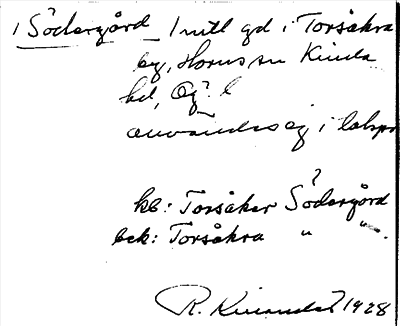 1 Södergård _ 1 mtl gd i Torsåkra
by, Horns sn Kinda
hd, Ög. l
användes ej i lokspr
?
kb: Torsåker Södergård
bck: Torsåkra " "
R. 1928